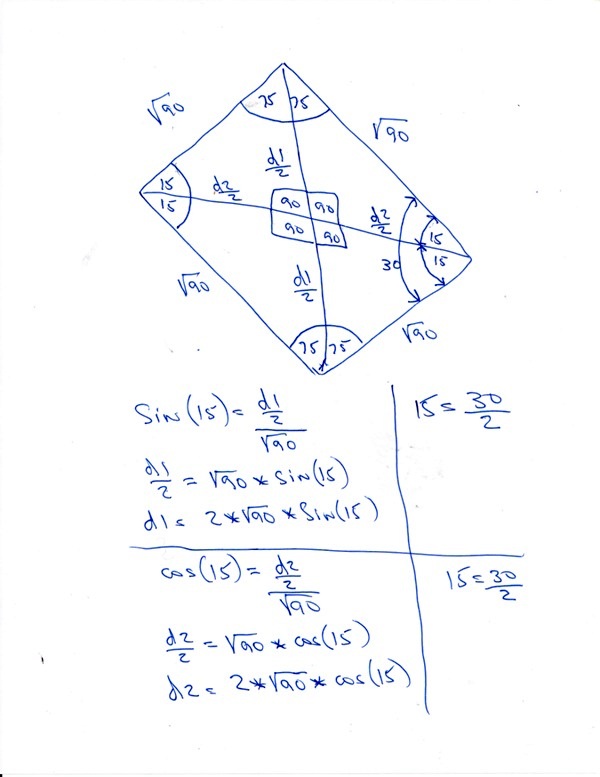 √90
√90
75 75
d1/2
15
15
d2/2
90 90
90 90
d2/2
15
15
30
√90
d1/2
√90
75 75
Sin(15) = (d1/2)/√90
d1/2 = √90 * Sin(15)
d1 = 2*√90 * Sin(15)
15 = 30/2
cos(15) = (d2/2)/√90
d2/2 = √90 * cos(15)
d2 = 2*√90 * cos(15)
15 = 30/2